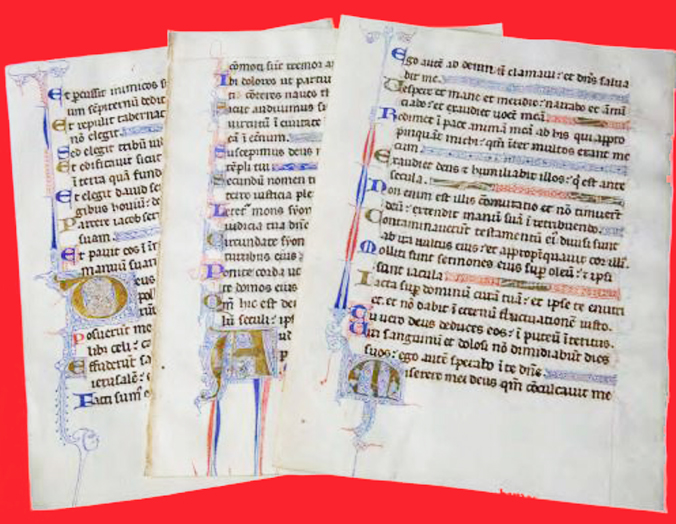 Et percussit inimicos s
um sēpiternū dedit
Et repulit tabernac
nō elegit.
Sed elegit tribū iu
Et edificauit sicut
ī terra quā fund
Et elegit dauid se
gibus houiū: d
Pascere iacob ser
suam.
Et pauit eos ī
manuū suar
D
poll
rū
Posuerūt mo
libi celi: c
Effuderūt sa
ierusalē: e
Facti sum o
cōmoti sūt tremor a
Ibi dolores ut partu
tī cōteres naues th
Sicut audiuimus si
uirtutū ī ciuitate
eā ī eternū.
Suscepimus deus m
tēpli tui
Secundū nomen t
terre iusticia ple
Letet᷑ mons syon
iudicia tua dn̄e
Circundate syon
turribus eius
Ponite corda ue
te domos eius
Qm̄ hic est de
lū seculi: ips
A ud
Ego autē ad deum clamaui: et dn̄s salua
bit me.
Vespere et mane et meridie: narrabo et ānū
ciabo: et exaudiet uocē meā.
Redimet ī pace animā meā ab his qui appro
pinquāt michi: qm̄ īter multos erant me
cum.
Exaudiet deus et humiliabit illos: qͥ est ante
secula.
Non enim est illis cōmutatio et nō timuert̄
deū: extendit manū suā ī retribuendo.
Contaminauerūt testamentū eiꝰ diuisi sunt
ab ira uultus eius: et appropīquauit cor illiꝰ.
Molliti sunt sermones eius sup oleū: et ipsi
sunt iacula
Iacta sup dominū curā tuā: et ipse te enutri
et: et nō dabit ī eternū fluctuationē iusto.
Tu uero deus deduces eos: ī puteū īteritus.
Viri sanguinū et dolosi nō dimidiabūt dies
suos: ego autē sperabo ī te dn̄e.
Miserere mei deus qm̄ cōculcauit me